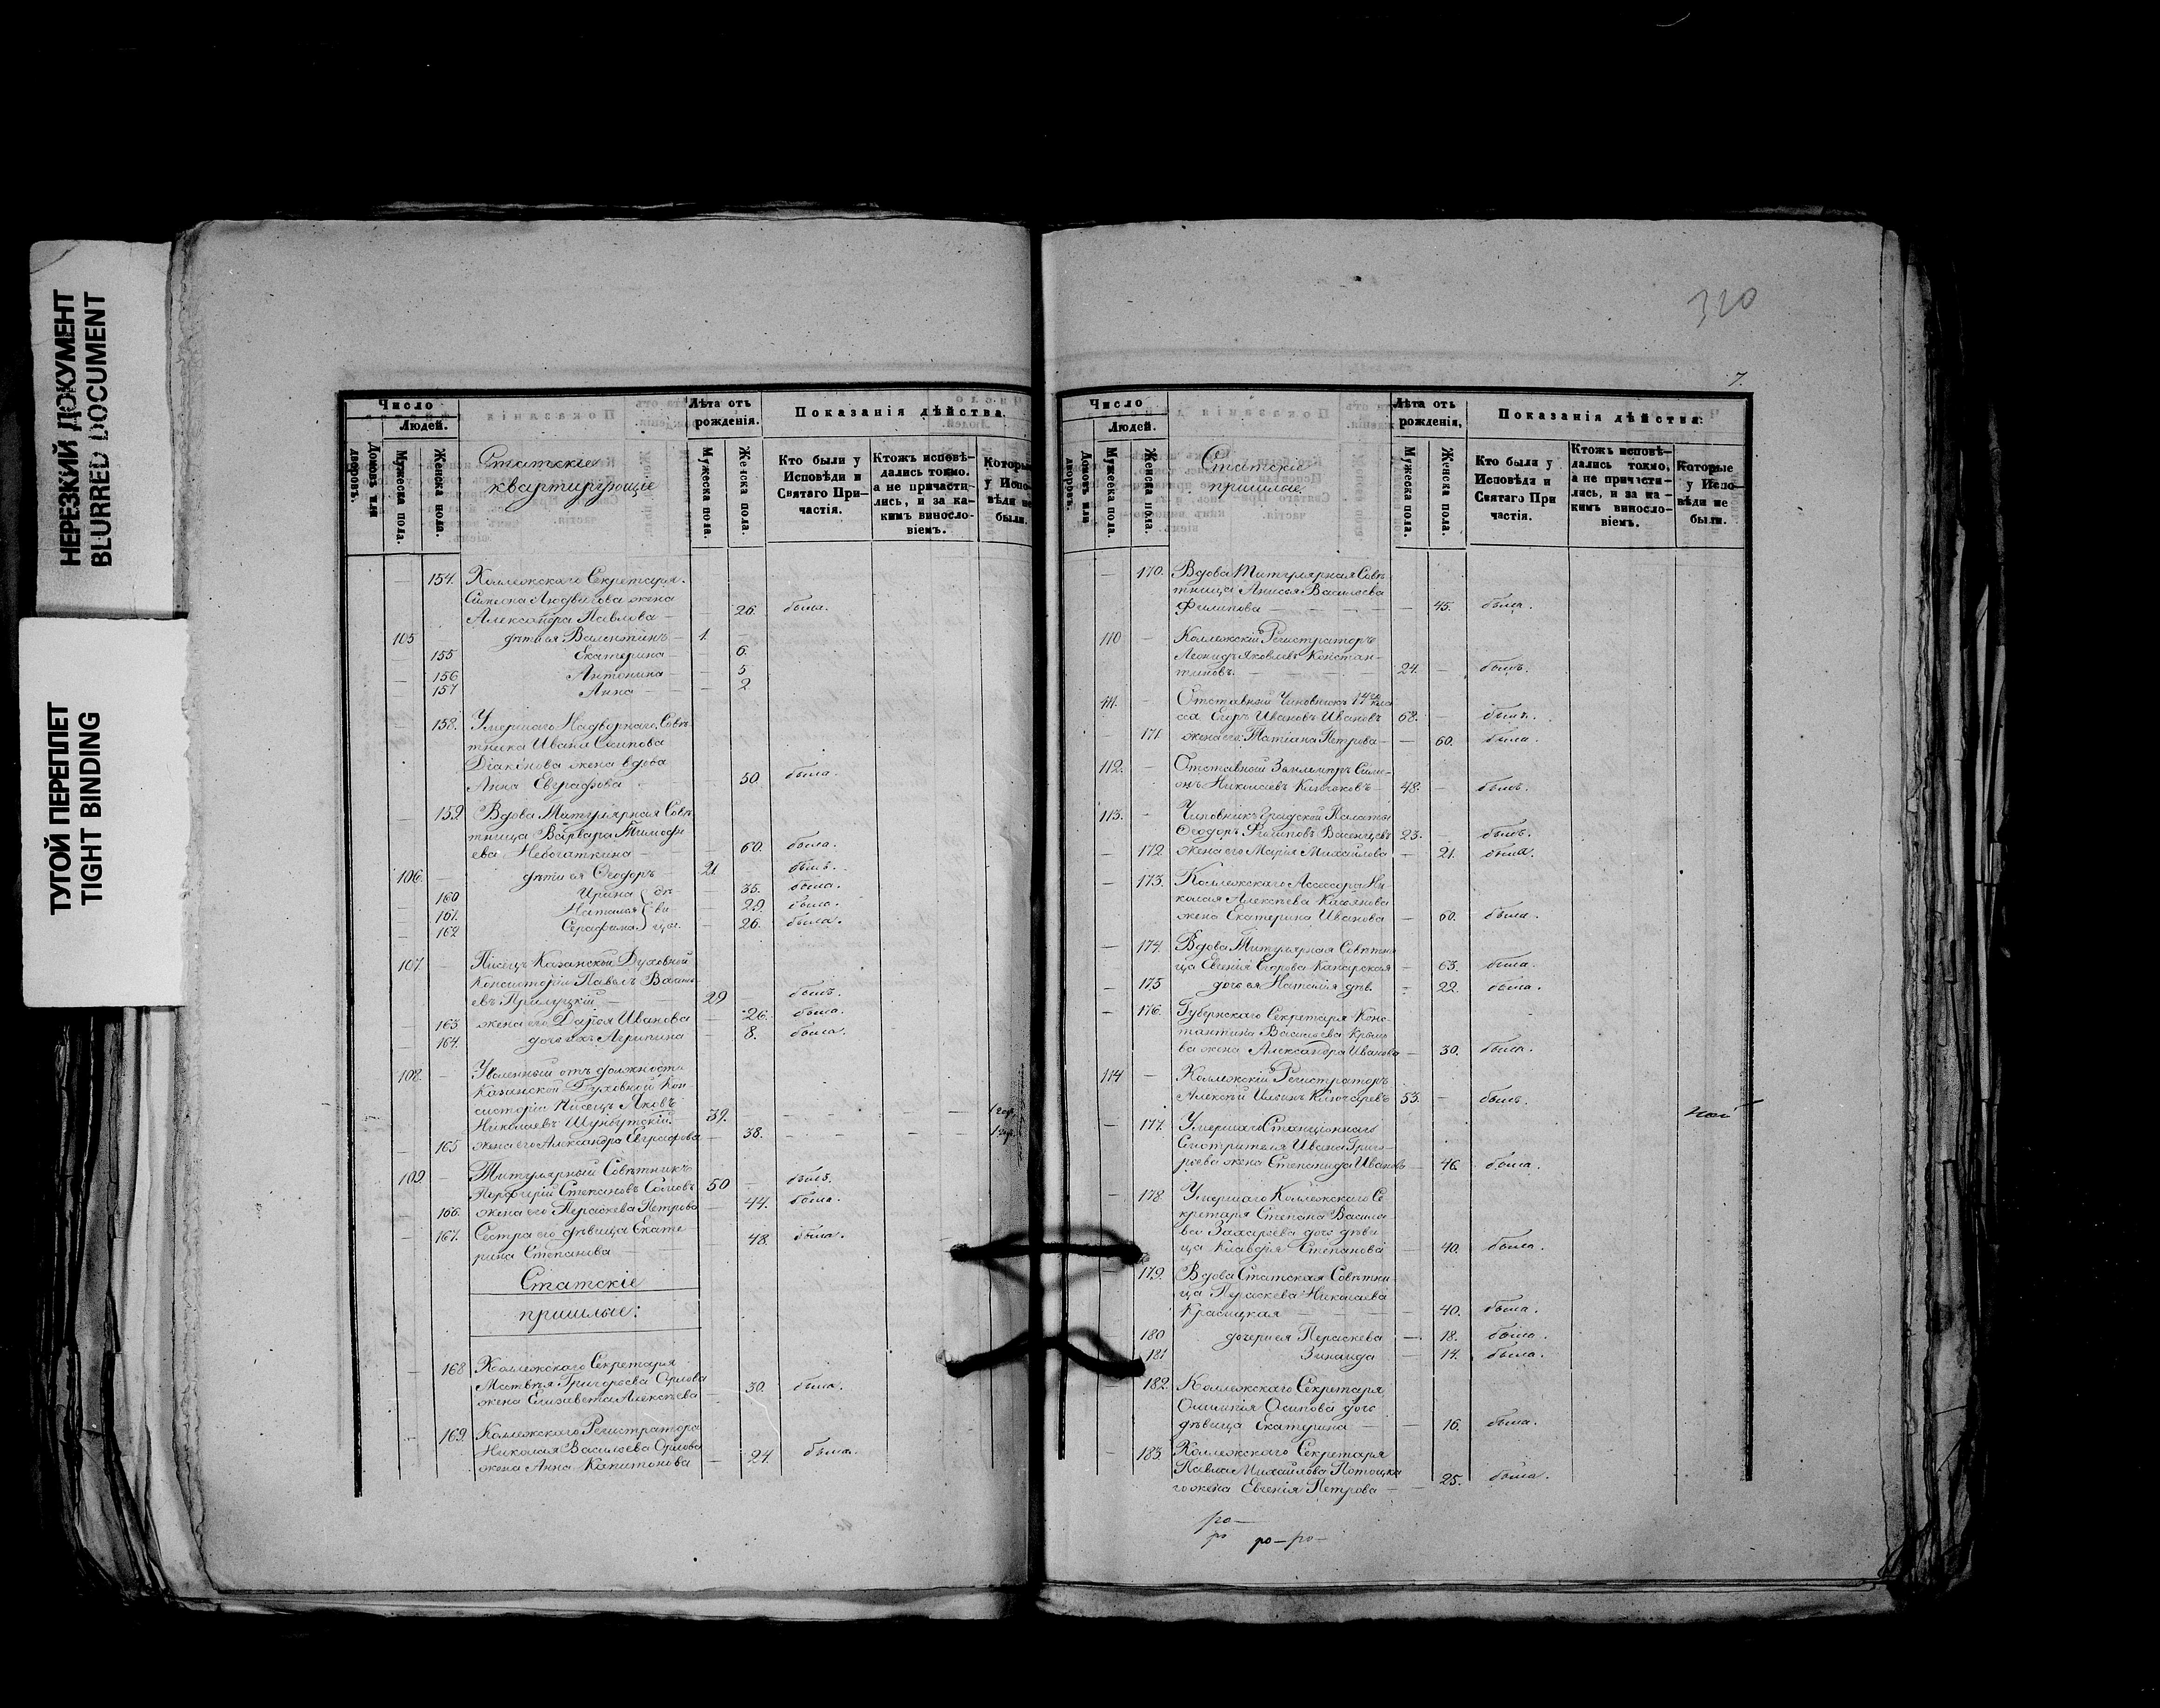 НЕРЕЗКИЙ ДОКУМЕНТ
BLURRED DOCUMENT
ТУГОЙ ПЕРЕПЛЕТ
TIGHT BINDING
Число
Людей.
Домовъ или дворовъ.
Мужеска пола.
Женска пола.
Статскіе
квартирующіе
Лѣта отъ рожденія.
Мужеска пола.
Женска пола.
Показанія дѣйства.
Кто были у Исповѣди и Святаго Причастія.
Ктожъ исповѣдались токмо, а не причастились, и за какимъ винословіемъ.
Которые у Исповѣди не были.
154. Коллежскаго Секретаря
Людвигова жена
Александра Павлова — 26. была.
105 дѣти ея Валентинъ — 1.
155 Екатерина — 6.
156 Антонина — 5
157 Анна — 2
158. Умершаго Надворнаго Совѣ-
тника Ивана Осипова
Діаконова жена вдова
Анна Евграфова 50 была.
159 Вдова Титулярная Совѣ-
тница Варвара Тимофе-
ева 60. была.
106. дѣти ея Ѳеодоръ — 21 былъ.
160 Ирина дѣ- 35. была.
161. Наталья ви- 29. была.
162 Серафима цы. 26. была.
107. Писецъ Казанской Духовной
Консисторіи Павелъ Василь-
евъ Прилуцкій — 29 былъ.
163 жена его Дарья Иванова 26. была.
164. дочь ихъ Агрипина 8. была.
108. Уволенный отъ должности
Казанской Духовной Кон-
систоріи Писецъ Яковъ
Николаевъ 39. 1 год.
165 жена его Александра Евграфова 38. 1 год.
109. Титулярный Совѣтникъ
Порфирій Степановъ 50 былъ.
166. жена его Параскева Петрова 44. была.
167. Сестра его дѣвица Екате-
рина Степанова 48. была.
Статскіе
пришлые:
168 Коллежскаго Секретаря
Матвѣя Григорьева Орлова
жена Елизавета Алексѣева 30. была.
169. Коллежскаго Регистратора
Николая Васильева Орлова
жена Анна Капитонова — 24. была.
320
7.
Число
Людей.
Домовъ или дворовъ.
Мужеска пола.
Женска пола.
Статскіе
пришлые.
Лѣта отъ рожденія.
Мужеска пола.
Женска пола.
Показанія дѣйства:
Кто были у Исповѣди и Святаго При частія.
Ктожъ исповѣ- дались токмо, а не причасти- лись, и за ка- кимъ винословіемъ.
Которые у Испо- вѣди не были.
170. Вдова Титулярная Совѣ-
тница Анисья Васильева
Филипова — 45. была.
110 Коллежскій Регистраторъ
Леонидъ Яковлевъ Констан-
тиновъ. — 24. былъ.
111. Отставный Чиновникъ 14го кла-
сса Егоръ Ивановъ Ивановъ 68. былъ.
171 жена его Татіана Петрова — 60. была.
112. Отставной
Николаевъ 48. былъ.
113. Чиновникъ Палаты
Ѳеодоръ Филиповъ 23. былъ.
172. жена его Марія Михайлова — 21. была.
173. Коллежскаго Асессора Ни-
колая Алексѣева
жена Екатерина Иванова — 60. была.
174. Вдова Титулярная Совѣтни-
ца Евгенія Егорова — 63. была.
175 дочь ея Наталія дѣв. — 22. была.
176. Губернскаго Секретаря Конс-
тантина Васильева Крыло-
ва жена Александра Иванова — 30. была.
114 Коллежскій Регистраторъ
Алексѣй Ильинъ Ключаревъ 53. былъ.
177. Умершаго Станціоннаго
Смотрителя Ивана Григо-
рьева жена Степанида Иванов. — 46. была.
178 Умершаго Коллежскаго Се-
кретаря Степана Василь-
ева Захарьева дочь дѣви-
ца Клавдія Степанова 40. была.
179. Вдова Статская Совѣтни-
ца Параскева Николаева
Красицкая — 40. была.
180 дочери ея Параскева — 18. была.
181 Зинаида — 14. была.
182. Коллежскаго Секретаря
Осипова дочь
дѣвица Екатерина — 16. была.
183. Коллежскаго Секретаря
Павла Михайлова Потоцка-
го жена Евгенія Петрова — 25. была.
ро—
ро ро—ро—